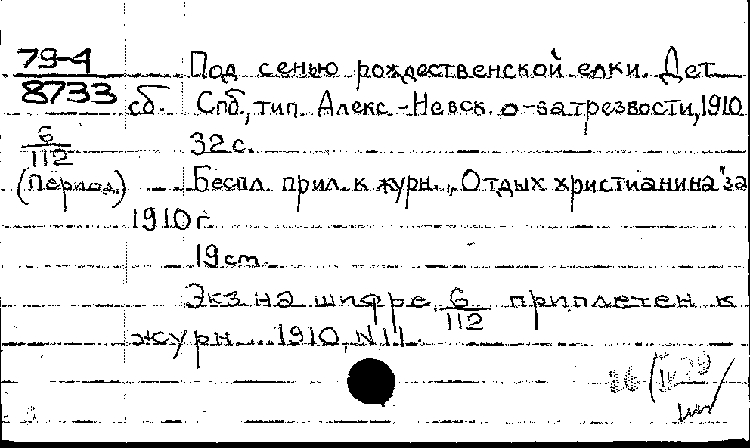 79-4 Под сенью рождественской елки. Дет.
8733 сб. Спб., тип. Алекс.-Невск. о-ва трезвости, 1910
6/112 32 с.
(Период.) Беспл. прил. к журн. „Отдых христианина" за
1910 г.
19 см.
Экз. на шифре 6/112 приплетен к
журн. 1910, № 11.